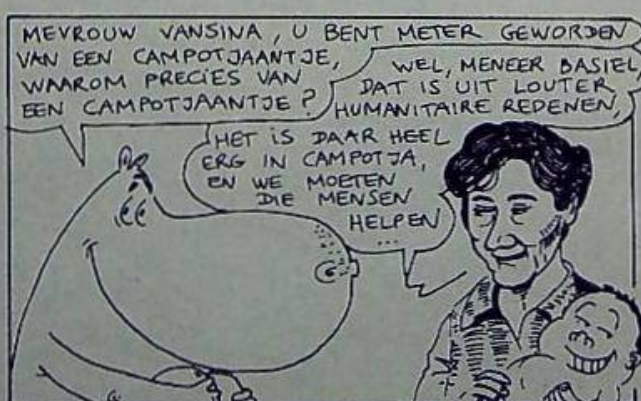 MEVROUW VANSINA, U BENT METER GEWORDEN
VAN EEN CAMPOTJAANTJE,
WAAROM PRECIES VAN
EEN CAMPOTJAANTJE?
WEL, MENEER BASIEL,
DAT IS UIT LOUTER
HUMANITAIRE REDENEN,
HET IS DAAR HEEL
ERG IN CAMPOTJA,
EN WE MOETEN
DIE MENSEN
HELPEN
...